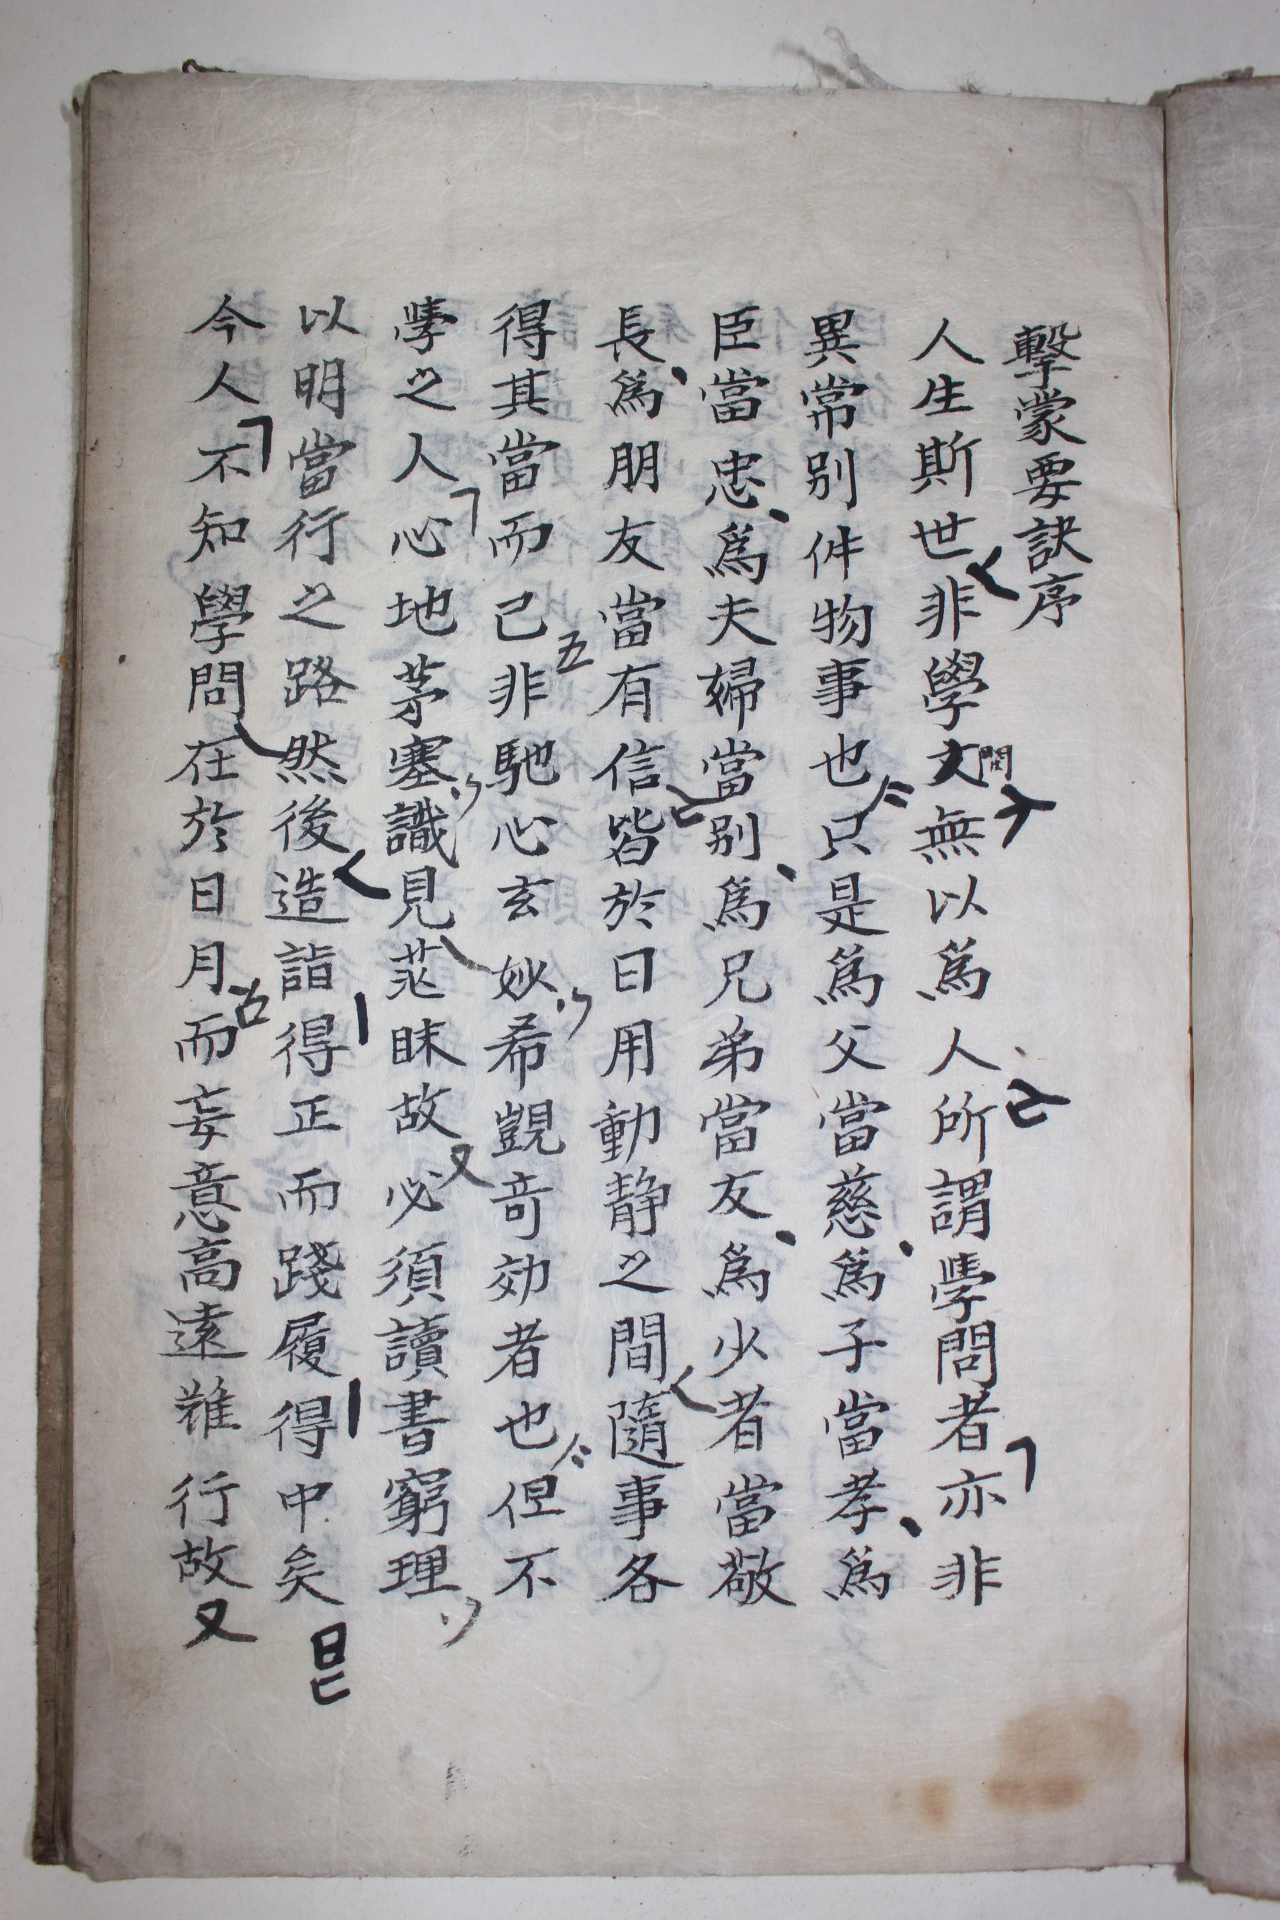 擊蒙要訣序
人生斯世非學文問無以爲人所謂學問者亦非
異常别件物事也只是爲父當慈爲子當孝爲
臣當忠爲夫婦當别爲兄弟當友爲少者當敬
長爲朋友當有信皆於日用動静之間隨事各
得其當而已五非馳心玄妙希覬奇効者也但不
學之人心地茅塞識見茫昧故又必須讀書窮理
以明當行之路然後造詣得正而踐履得中矣
今人不知學問在於日月古而妄意高遠難行故又